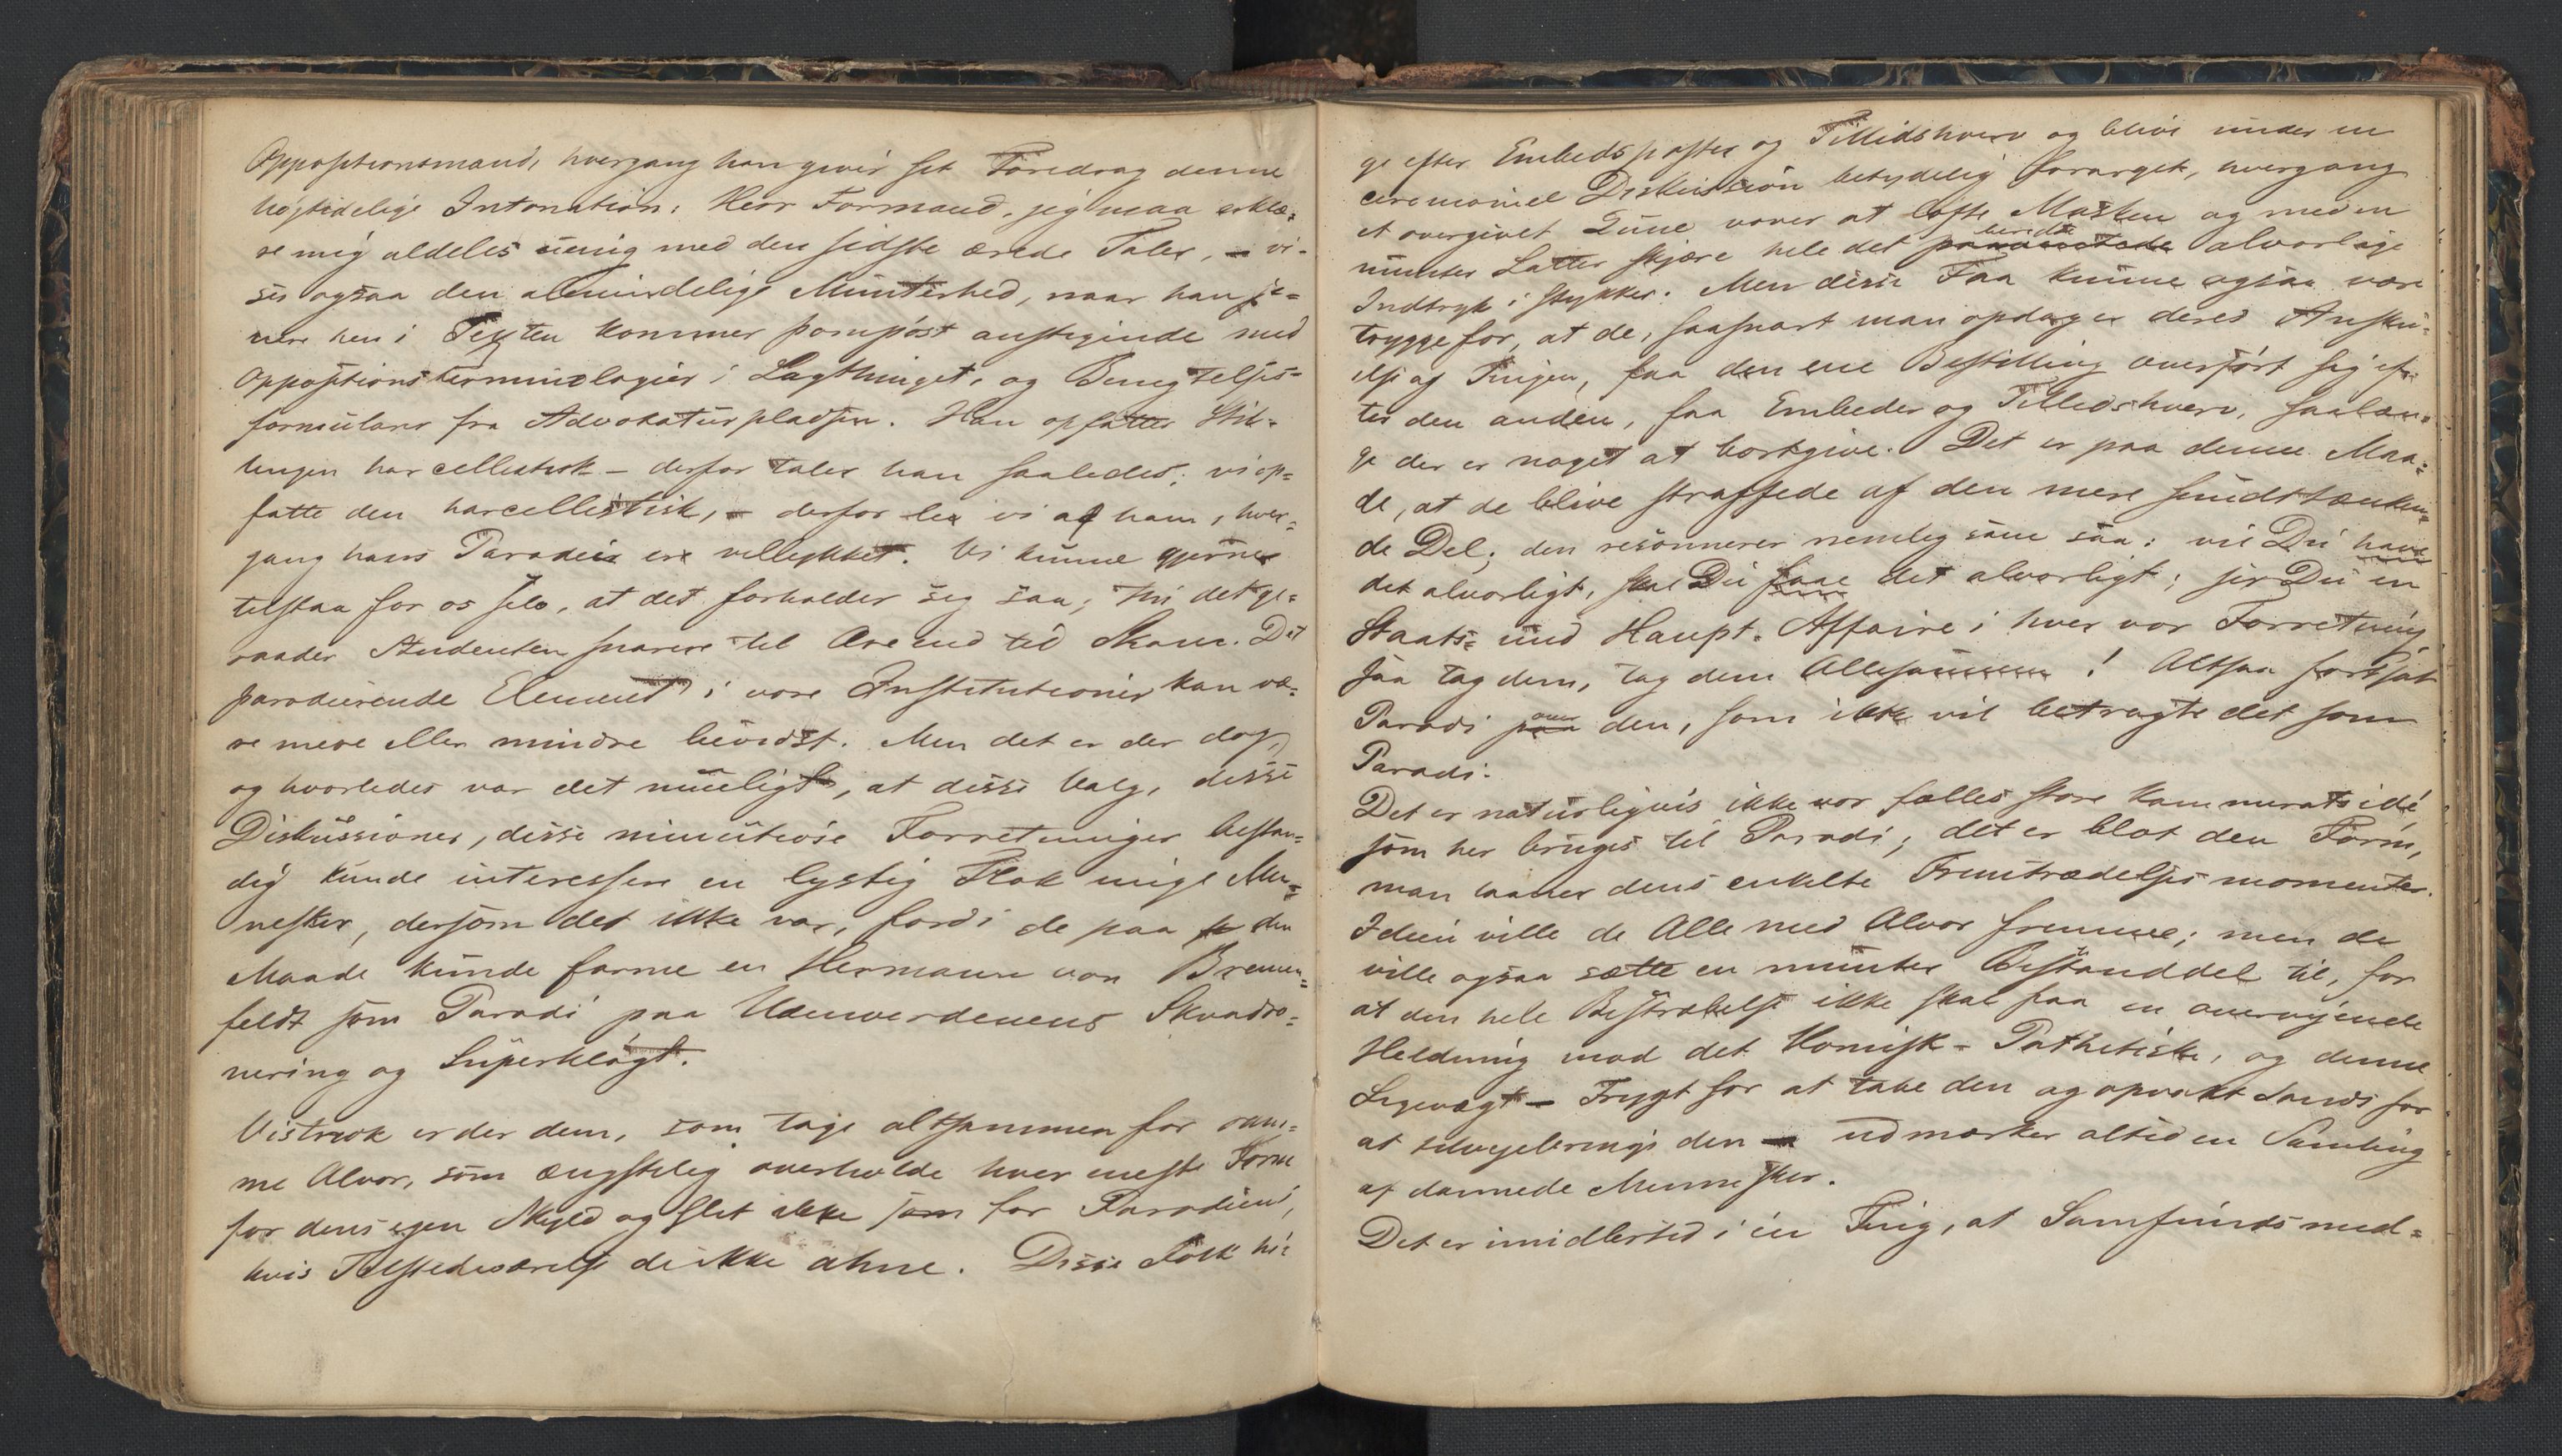 Oppositionsmand, hvergang han giver sit Foredrag denne
højtidelige Intonation: Herr Formand, jeg maa erklæ-
re mig aldeles uenig med den sidste ærede Taler, – vi-
ses ogsaa den almindelige Munterhed, naar han se-
nere hen i Texten kommer pompøst anstigende med
Oppositionsterminologier i Lagthinget, og Benegtelses-
formularer fra Advokaturpladsen. Han opfatter Stil-
lingen harcellistisk – derfor taler han saaledes; vi op-
fatte den harcellistisk, – derfor le vi af ham, hver-
gang hans Parodi er vellykket. Vi kunne gjerne
tilstaa for os selv, at det forholder sig saa; thi det ge-
raader Studenten snarere til Ære end til Skam. Det
parodierende Element i vore Institutioner kan væ-
re mere eller mindre bevidst. Men det er der dog,
og hvorledes var det mueligt, at disse Valg, disse
Diskussioner, disse minutiøse Forretninger bestan-
dig kunde interessere en lystig Flok unge Men-
nesker, dersom det ikke var, fordi de paa den
Maade kunde forme en Hermann von Bremen-
feldt som Parodi paa Udenverdenens Skvadro-
nering og Superkløgt.
Vistnok er der dem, som tage altsammen for ram-
me Alvor, som ængstelig overholde hver eneste Form
for dens egen Skyld og slet ikke som for Parodiens,
hvis Tilstedeværelse de ikke ahne. Disse Folk hi-
ge efter Embedsposter og Tillidshverv og blive under en
ceremoniel Diskussion betydelig forarget, hvergang
et overgivet Lune vover at løfte Masken og med en
munter Latter skjære hele det beredte alvorlige
Indtryk i Stykker. Men disse Faa kunne ogsaa være
trygge for, at de, saasnart man opdager deres Ansku-
else af Tingen, faa den ene Bestilling overført sig ef-
ter den anden, faa Embeder og Tillidshverv, saalæn-
ge der er noget at bortgive. Det er paa denne Maa-
de, at de blive straffede af den mere sundttænken-
de Del; den resonnerer nemlig som saa: vil Du have
det alvorligt, skal Du faae det alvorligt; ser Du en
Staats- und Haupt-Affaire i hver vor Forretning
saa tag dem, tag dem Allesammen! Altsaa fortsat
Parodi over den, som ikke vil betragte det som
Parodi.
Det er naturligvis ikke vor fælles store Kammeratsidé,
som her bruges til Parodi; det er blot den Form,
man laaner dens enkelte Fremtrædelsesmomenter.
Ideen ville de Alle med Alvor fremme; men de
ville ogsaa sætte en munter Bestanddel til, for
at den hele Bestræbelse ikke skal faa en overvejende
Heldning mod det Komisk-Pathetiske, og denne
Ligevægt – Frygt for at tabe den og opvakt Sands for
at tilvejebringe den – udmærker altid en Samling
af dannede Mennesker.
Det er imidlertid i én Ting, at Samfundsmed-